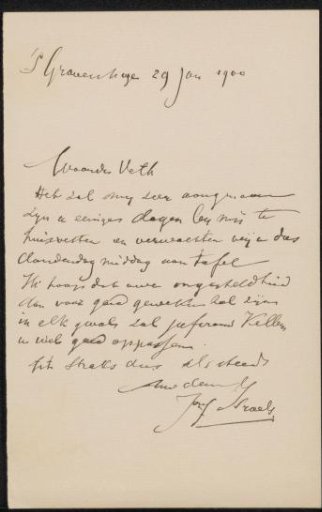 's Gravenhage 29 Jan 1900
Waarde Veth
Het zal my zeer aangenaam
zyn u eenige dagen by mij te
huisvesten en verwachten wij u dus
donderdag middag aan tafel
Ik hoop dat uwe ongesteldheid
dan voor goed geweken zal zijn
in elk geval zal juffrouw
u wel goed oppassen.
tot straks dus als steeds
Jozef Israels